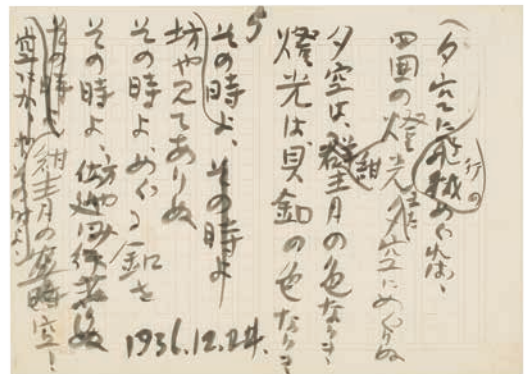 夕空に飛行機めぐれば、
四囲の燈光また夕空にめぐりぬ
夕空は、紺青の色なりき
燈光は貝釦の色なりき
その時よ、その時よ
坊や見てありぬ
その時よ、めぐる釦を
その時よ、坊や
その時よ紺青の空！
1936.12.24.